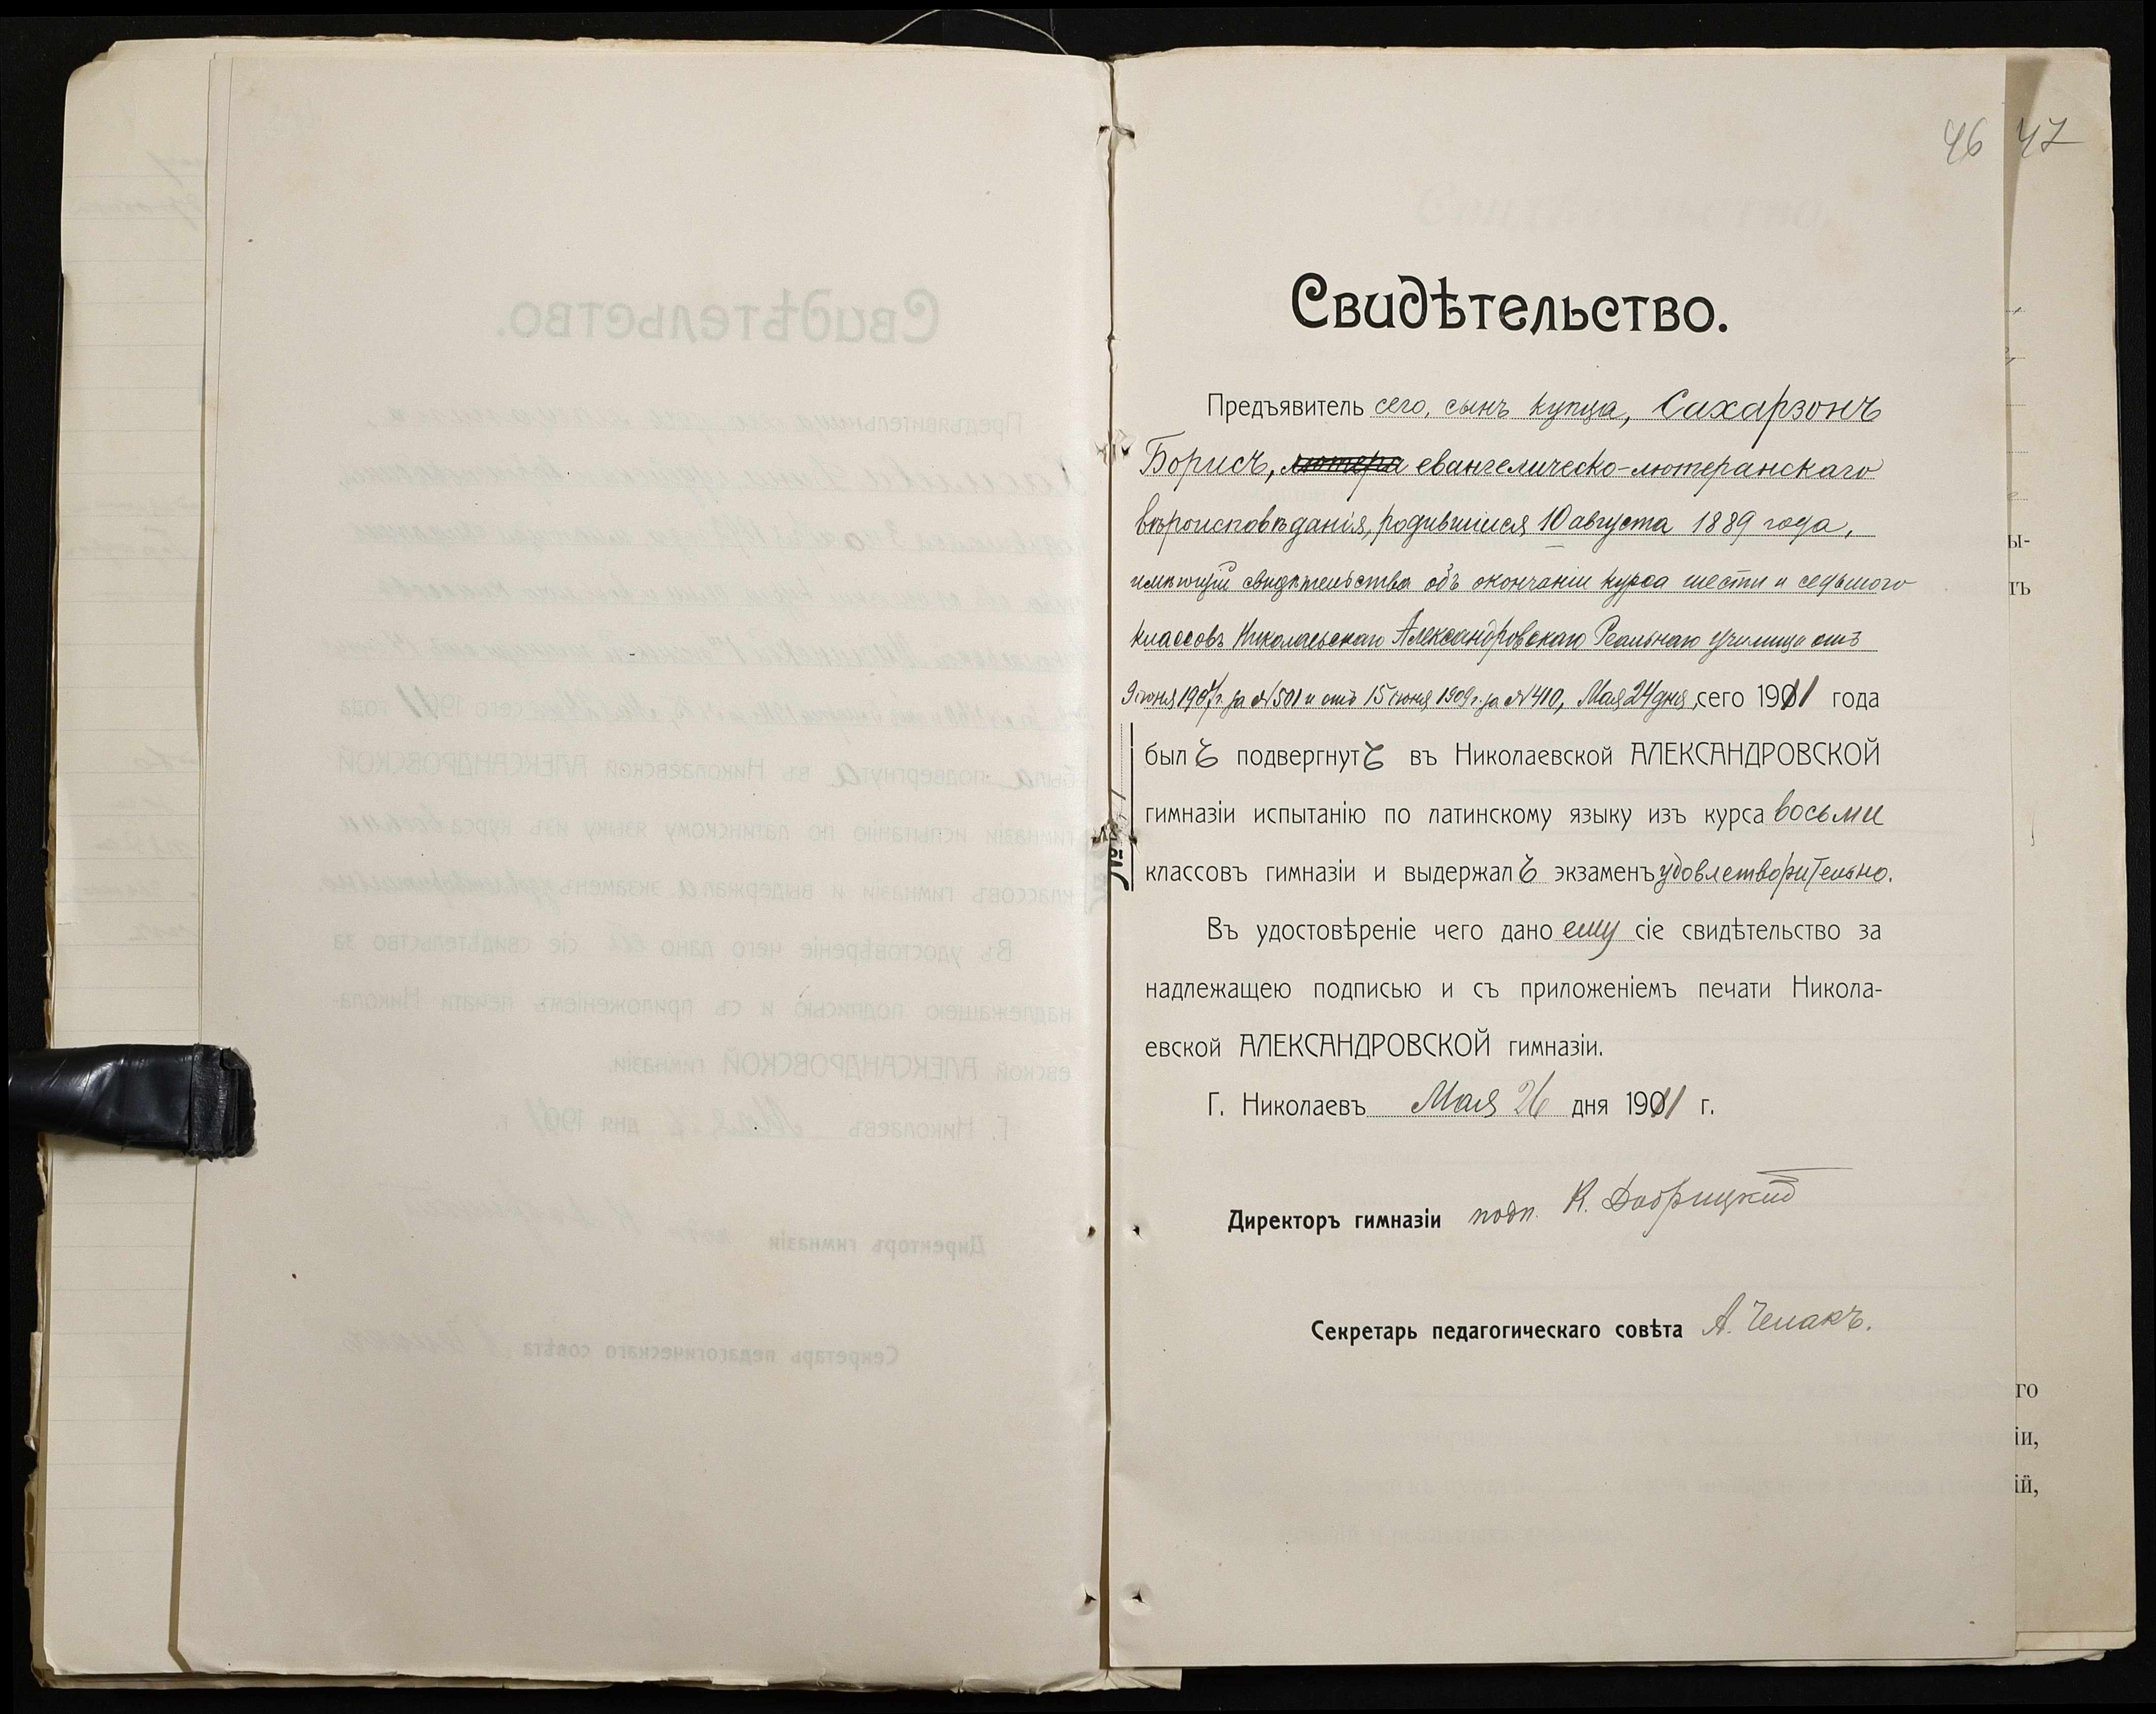 46 47
Свидѣтельство.
Предъявитель сего, сынъ купца, Сахарзонъ
Борисъ, лютера евангелическо-лютеранскаго
вѣроисповѣданія, родившійся 10 августа 1889 года,
имѣющій свидѣтельства объ окончаніи курса шести и седьмого
классовъ Николаевскаго Александровскаго Реальнаго училища отъ
9 іюня 190 г. за № 501 и отъ 15 іюня 1909 г. за № 410, Мая 24 дня, сего 1911 года
былъ подвергнутъ въ Николаевской АЛЕКСАНДРОВСКОЙ
гимназіи испытанію по латинскому языку изъ курса восьми
классовъ гимназіи и выдержалъ экзаменъ удовлетворительно.
Въ удостовѣреніе чего дано ему сіе свидѣтельство за
надлежащею подписью и съ приложеніемъ печати Никола-
евской АЛЕКСАНДРОВСКОЙ гимназіи.
Г. Николаевъ Мая 26 дня 1911 г.
Директоръ гимназіи подп. К. Добрицкій
Секретарь педагогическаго совѣта А. Чепакъ.
№
ы-
го
іи,
ій,